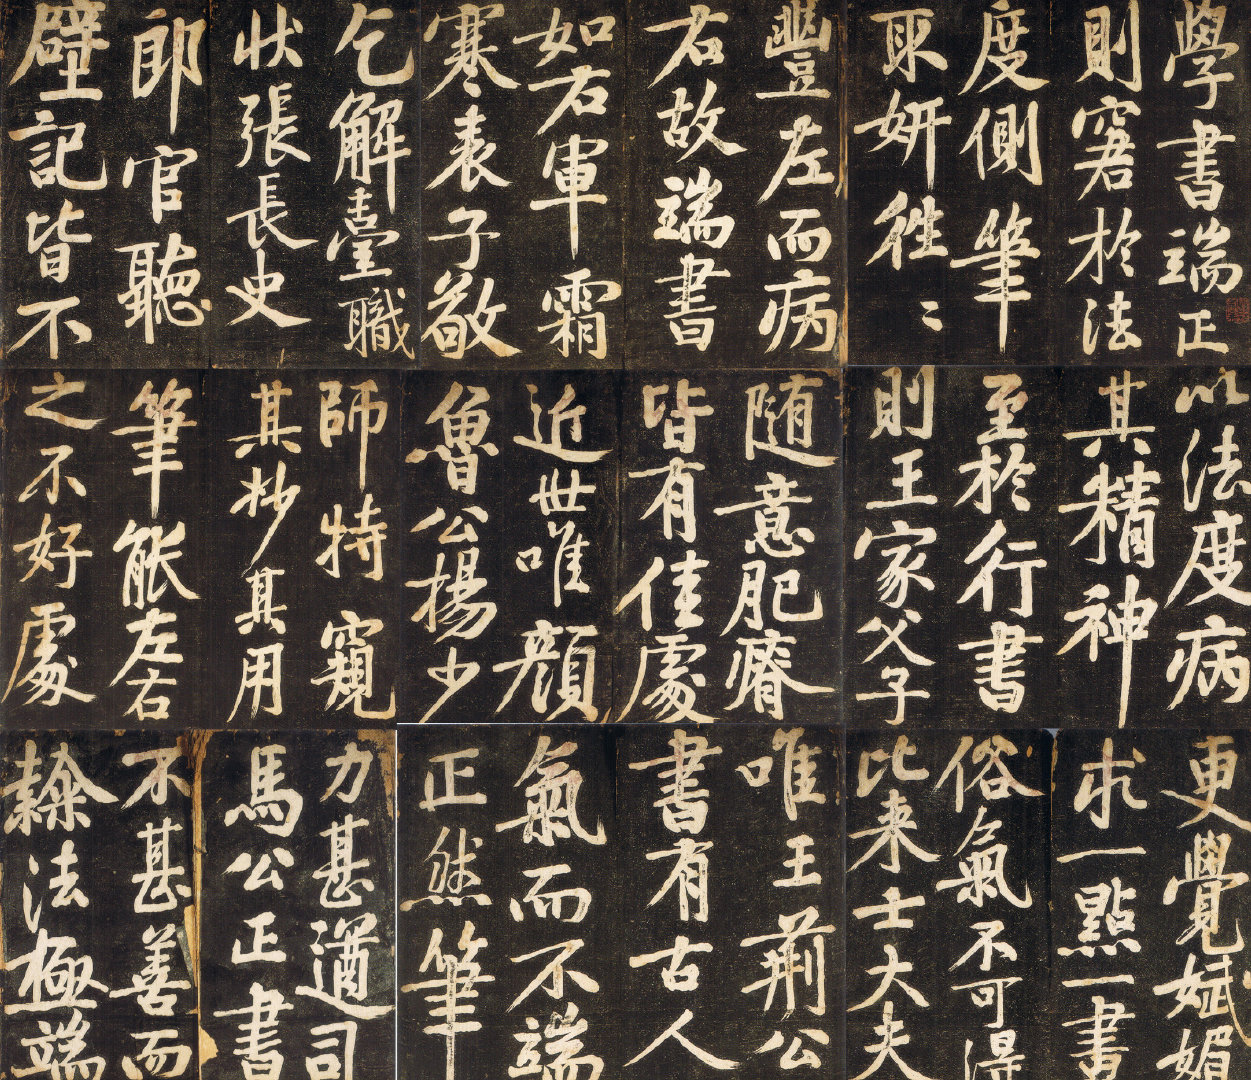 學書端正
則窘於法
度側筆
取妍往〻
豐左而病
右故端書
如右軍霜
寒表子敬
乞解臺職
狀張長史
郎官聽
壁記皆不
以法度病
其精神
至於行書
則王家父子
隨意肥瘠
皆有佳處
近世唯顏
魯公楊少
師特窺
其妙其用
筆能左右
之不好處
更覺娬媚
求一點一畫
俗氣不可得
比來士大夫
唯王荊公
書有古人
氣而不端
正然筆
力甚遒司
馬公正書
不甚善而
隸法極端